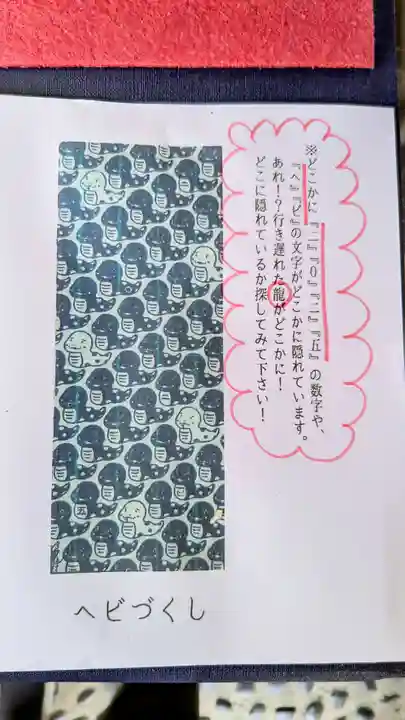 ※どこかに『二』『0』『二』『五』の数字や、
『へ』『ビ』の文字がどこかに隠れています。
あれ！？行き遅れた龍がどこかに！
どこに隠れているか探してみて下さい！
ヘビづくし